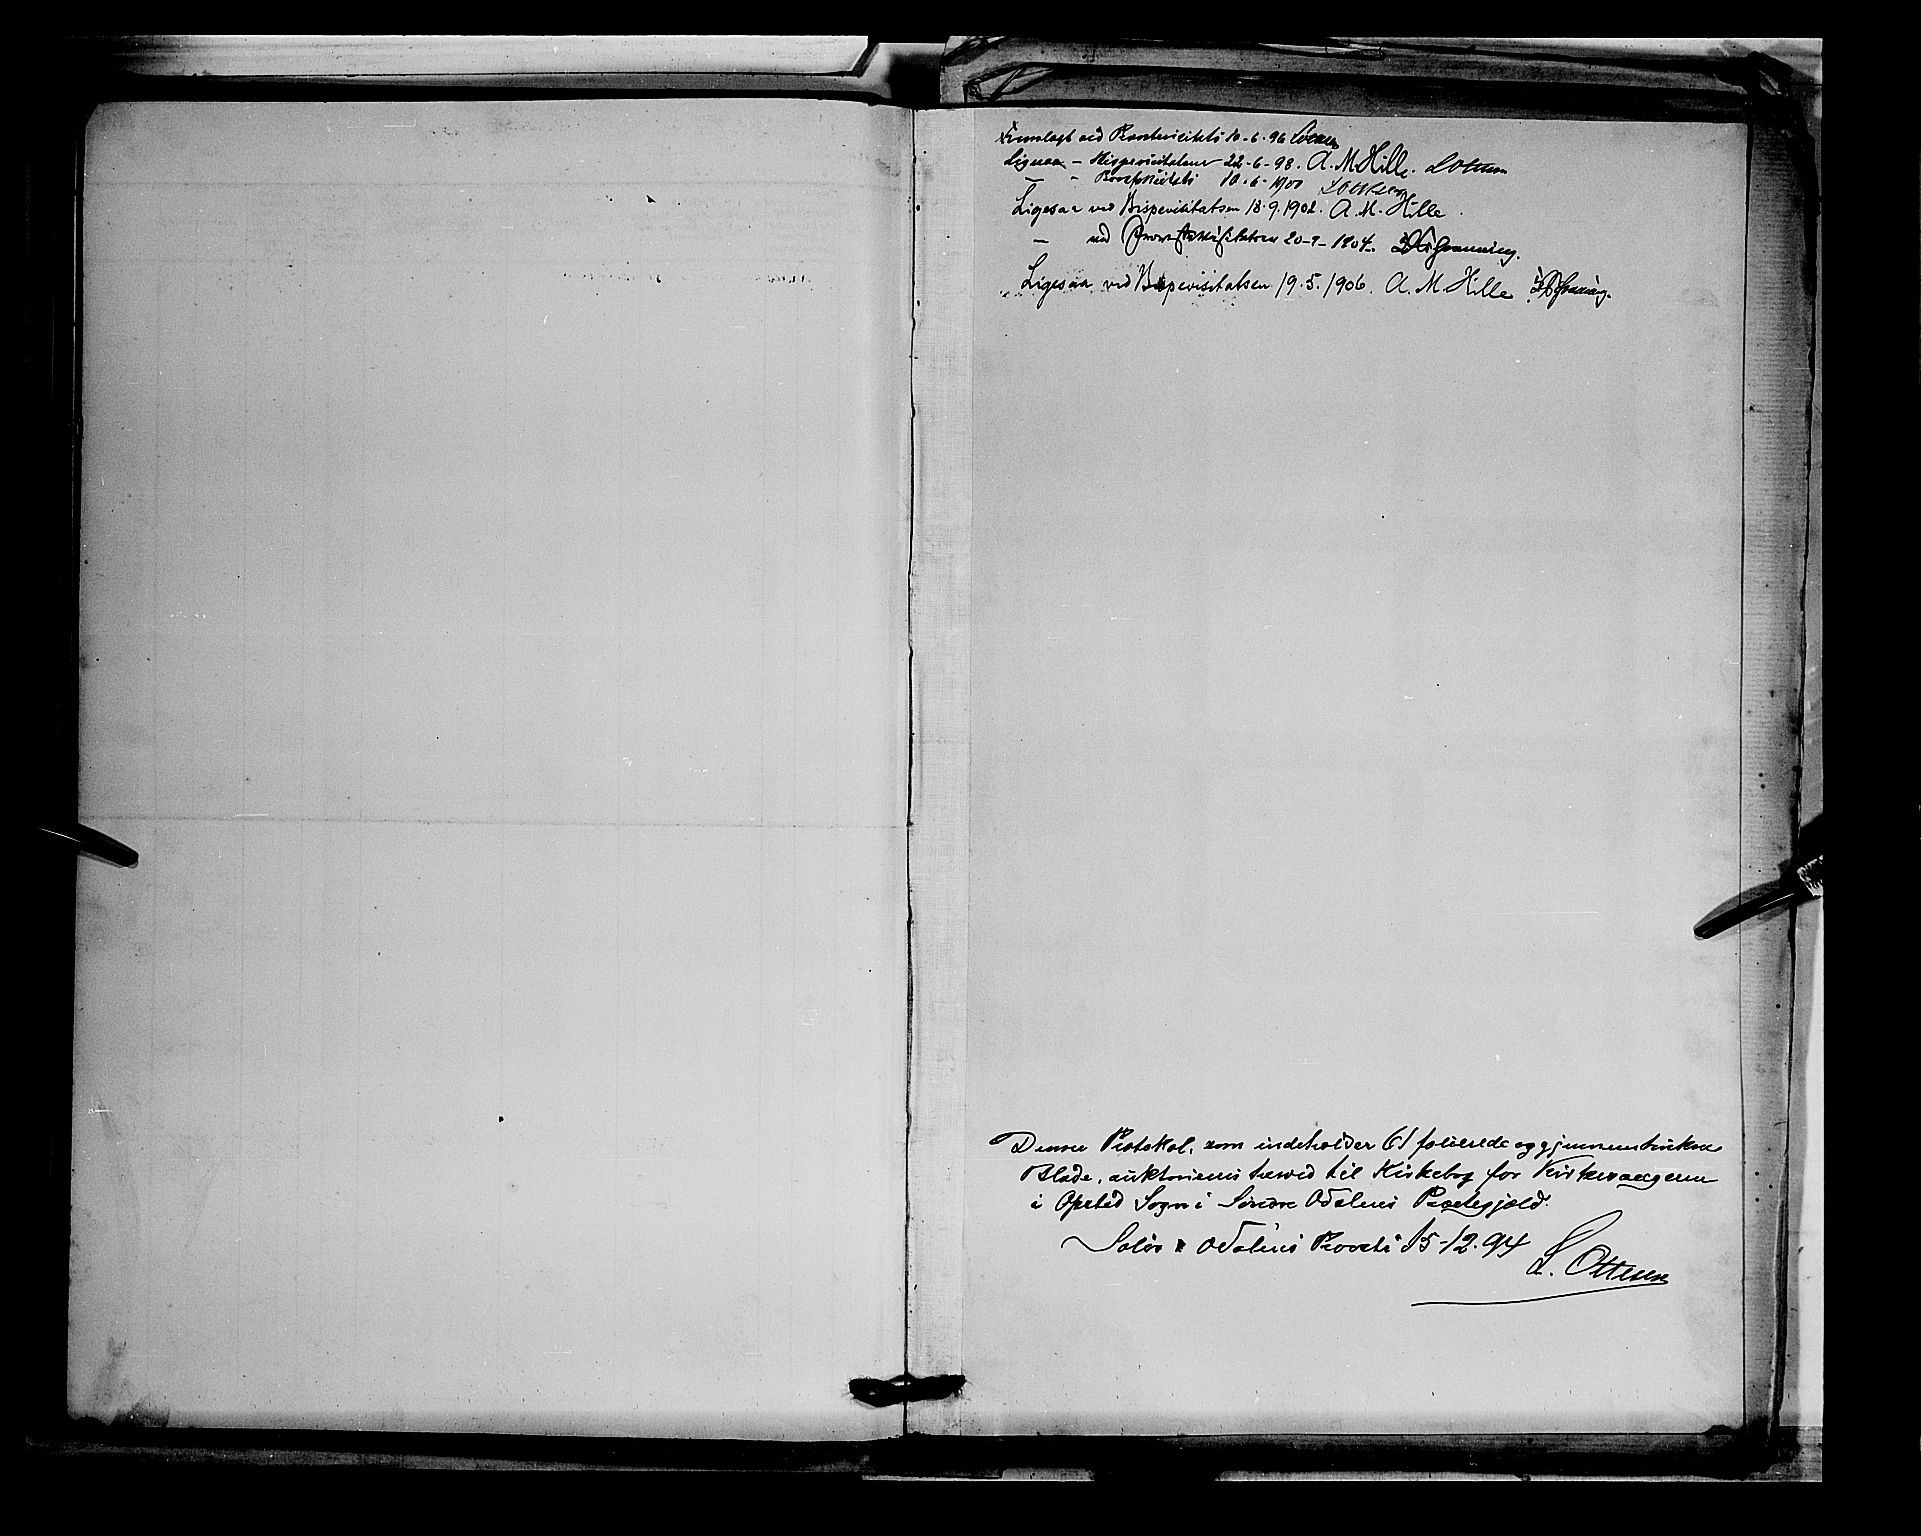 Fremlagt ved Provstevisitats 10-6-96 LOttesen
Ligesaa - Bispevisitatsen 22-6-98. A. M. Hille. LOttesen
— - Provstevisitats 10-6-1900 LOttesen
Ligesaa ved Bispevisitatsen 18.9.1902. A. M. Hille.
— ved Provstevisitatsen 20-9-1904.
Ligesaa ved Bispevisitatsen 19.5.1906. A. M Hille
Denne Protokol, som indeholder 61 folierede og gjennemtrukne
Blade, auktoriseres herved til Kirkebog for Kirkesangeren
i Opstad Sogn i Søndre Odalens Præstegjeld.
Solør & Odalens Provsti 15-12-94
L. Ottesen